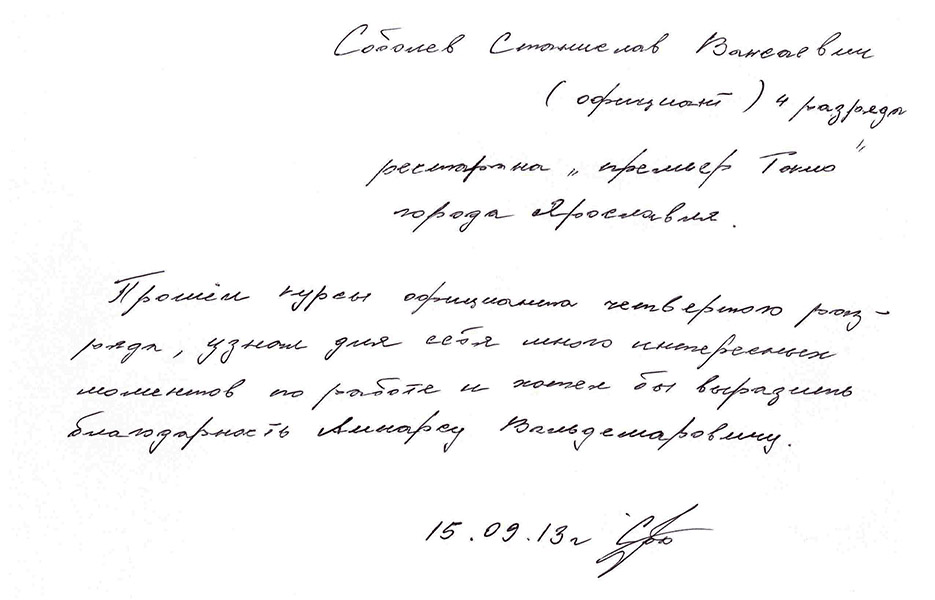 Соболев Станислав
(официант) 4 разряда
ресторана „премьер Токио"
города Ярославля.
Прошёл курсы официанта четвертого раз-
ряда, узнал для себя много интересных
моментов по работе и хотел бы выразить
благодарность Вальдемаровичу.
15.09.13г